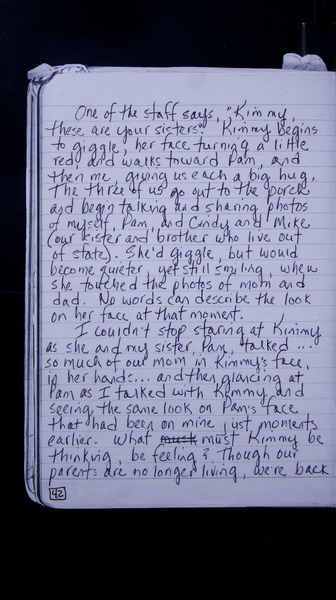 One of the staff says, "Kimmy,
these are your sisters". Kimmy begins
to giggle, her face turning a little
red, and walks toward Pam, and
then me, giving us each a big hug.
The three of us go out to the porch
and begin talking and sharing photos
of myself, Pam, and Cindy and Mike
(our sister and brother who live out
of state). She'd giggle, but would
become quieter, yet still smiling, when
she touched the photos of mom and
dad. No words can describe the look
on her face at that moment.
I couldn't stop staring at Kimmy
as she and my sister, Pam, talked ...
so much of our mom in Kimmy's face,
in her hands... and then glancing at
Pam as I talked with Kimmy and
seeing the same look on Pam's face
that had been on mine just moments
earlier. What musk must Kimmy be
thinking, be feeling? Though our
parents are no longer living, we're back
42